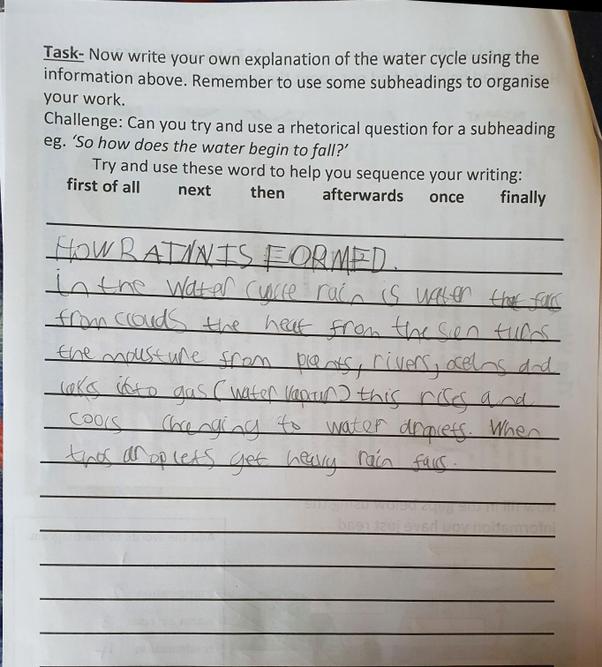 Task- Now write your own explanation of the water cycle using the
information above. Remember to use some subheadings to organise
your work.
Challenge: Can you try and use a rhetorical question for a subheading
eg. ‘So how does the water begin to fall?’
Try and use these word to help you sequence your writing:
first of all next then afterwards once finally
HOW RAINN IS FORMED.
in the water cycle rain is water that falls
from clouds the heat from the sun turns
the mousture from plants, rivers, oceans and
lakes into gas (water vapour) this rises and
cools changing to water droplets. When
droplets get heavy rain falls.